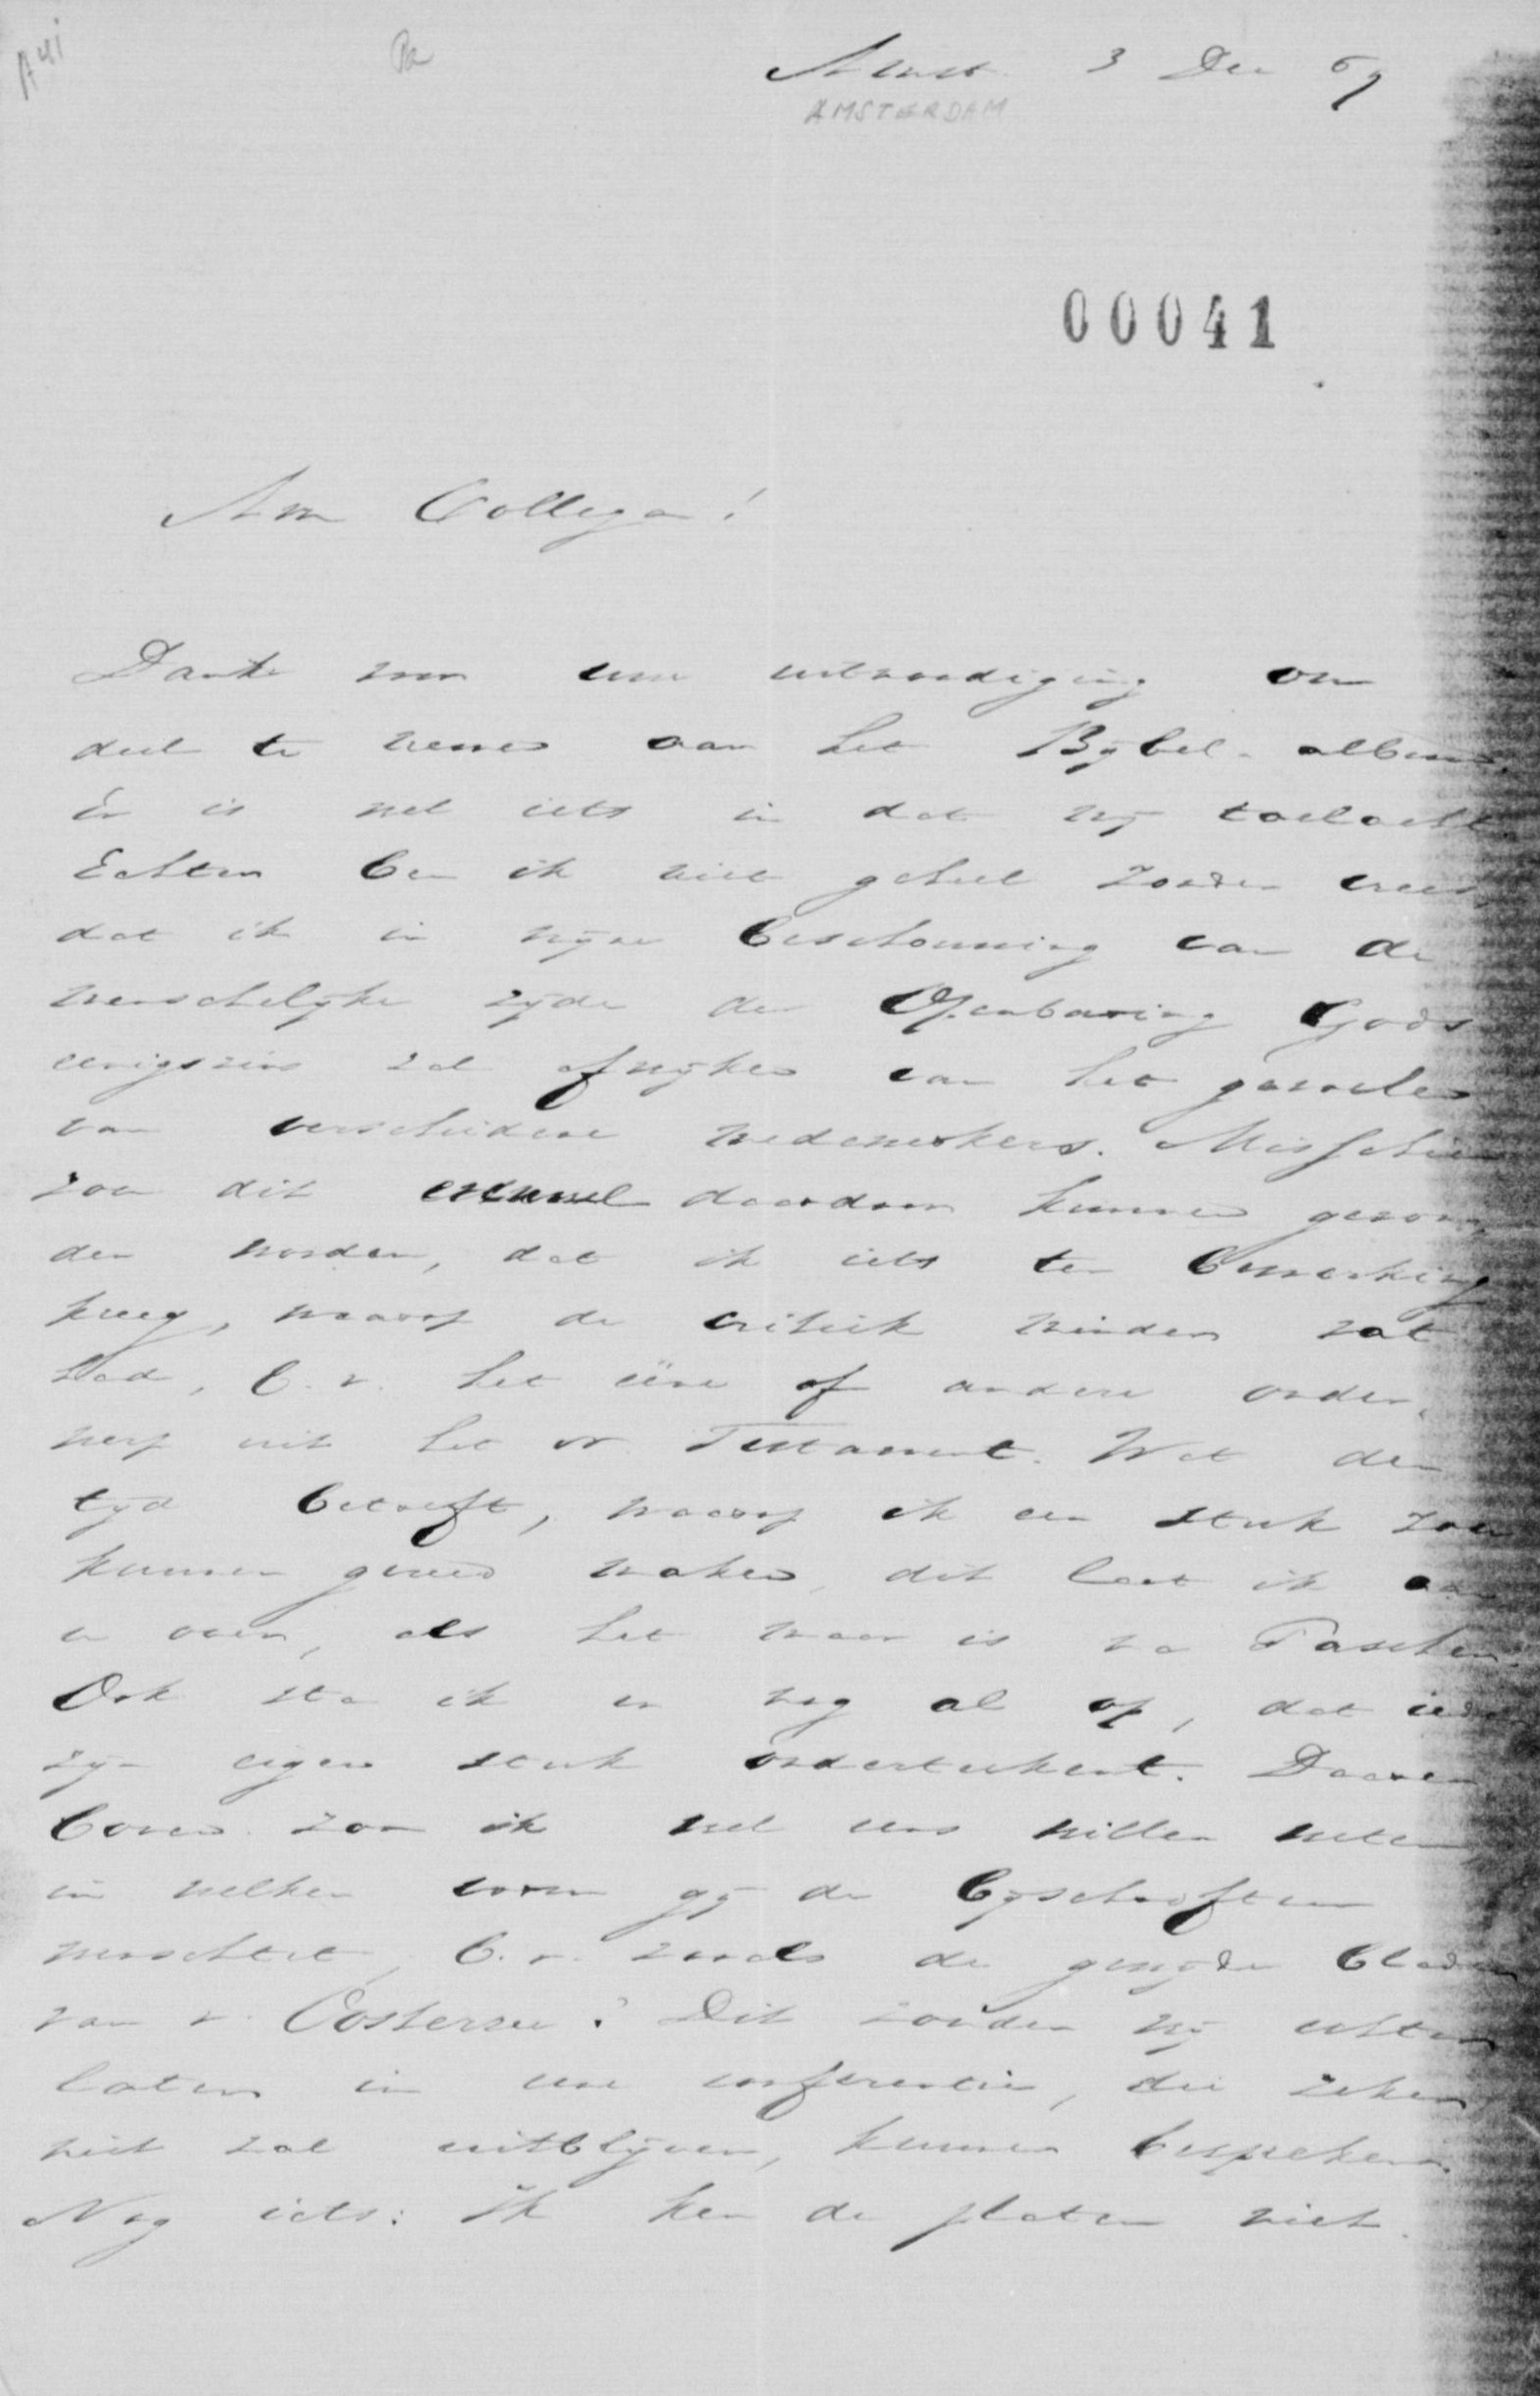 A41 Pa
Amst. 3 Dec 69
AMSTERDAM
00041
Am Collega!
Dank voor uwe uitnoodiging om
deel te nemen aan het Bijbel-album.
Er is wel iets in dat mij toelacht.
Echter ben ik niet geheel zonder vrees
dat ik in mijne beschouwing van de
menschelijke zijde der Openbaring Gods
eenigszins zal afwijken van het gevoelen
van verscheidene medewerkers. Misschien
zou dit euvel daardoor kunnen gevon-
den worden, dat ik iets ter bewerking
kreeg, waarop de critiek minder vat
had, b.v. het eene of andere onder-
werp uit het N. Testament. Wat den
tijd betreft, waarop ik een stuk zou
kunnen gereed maken, dit laat ik aan
u over, als het maar is na Paschen.
Ook sta ik er nog al op, dat ieder
zijn eigen stuk onderteekent. Daaren-
boven zou ik wel eens willen weten
in welken vorm gij de bijschriften
wenschtet, b.v. zooals de gewijde bladen
van v. Oosterzee? Dit zouden wij echter
laten in eene conferentie, die zeker
niet zal uitblijven, kunnen bespreken.
Nog iets: Ik ken de platen niet.